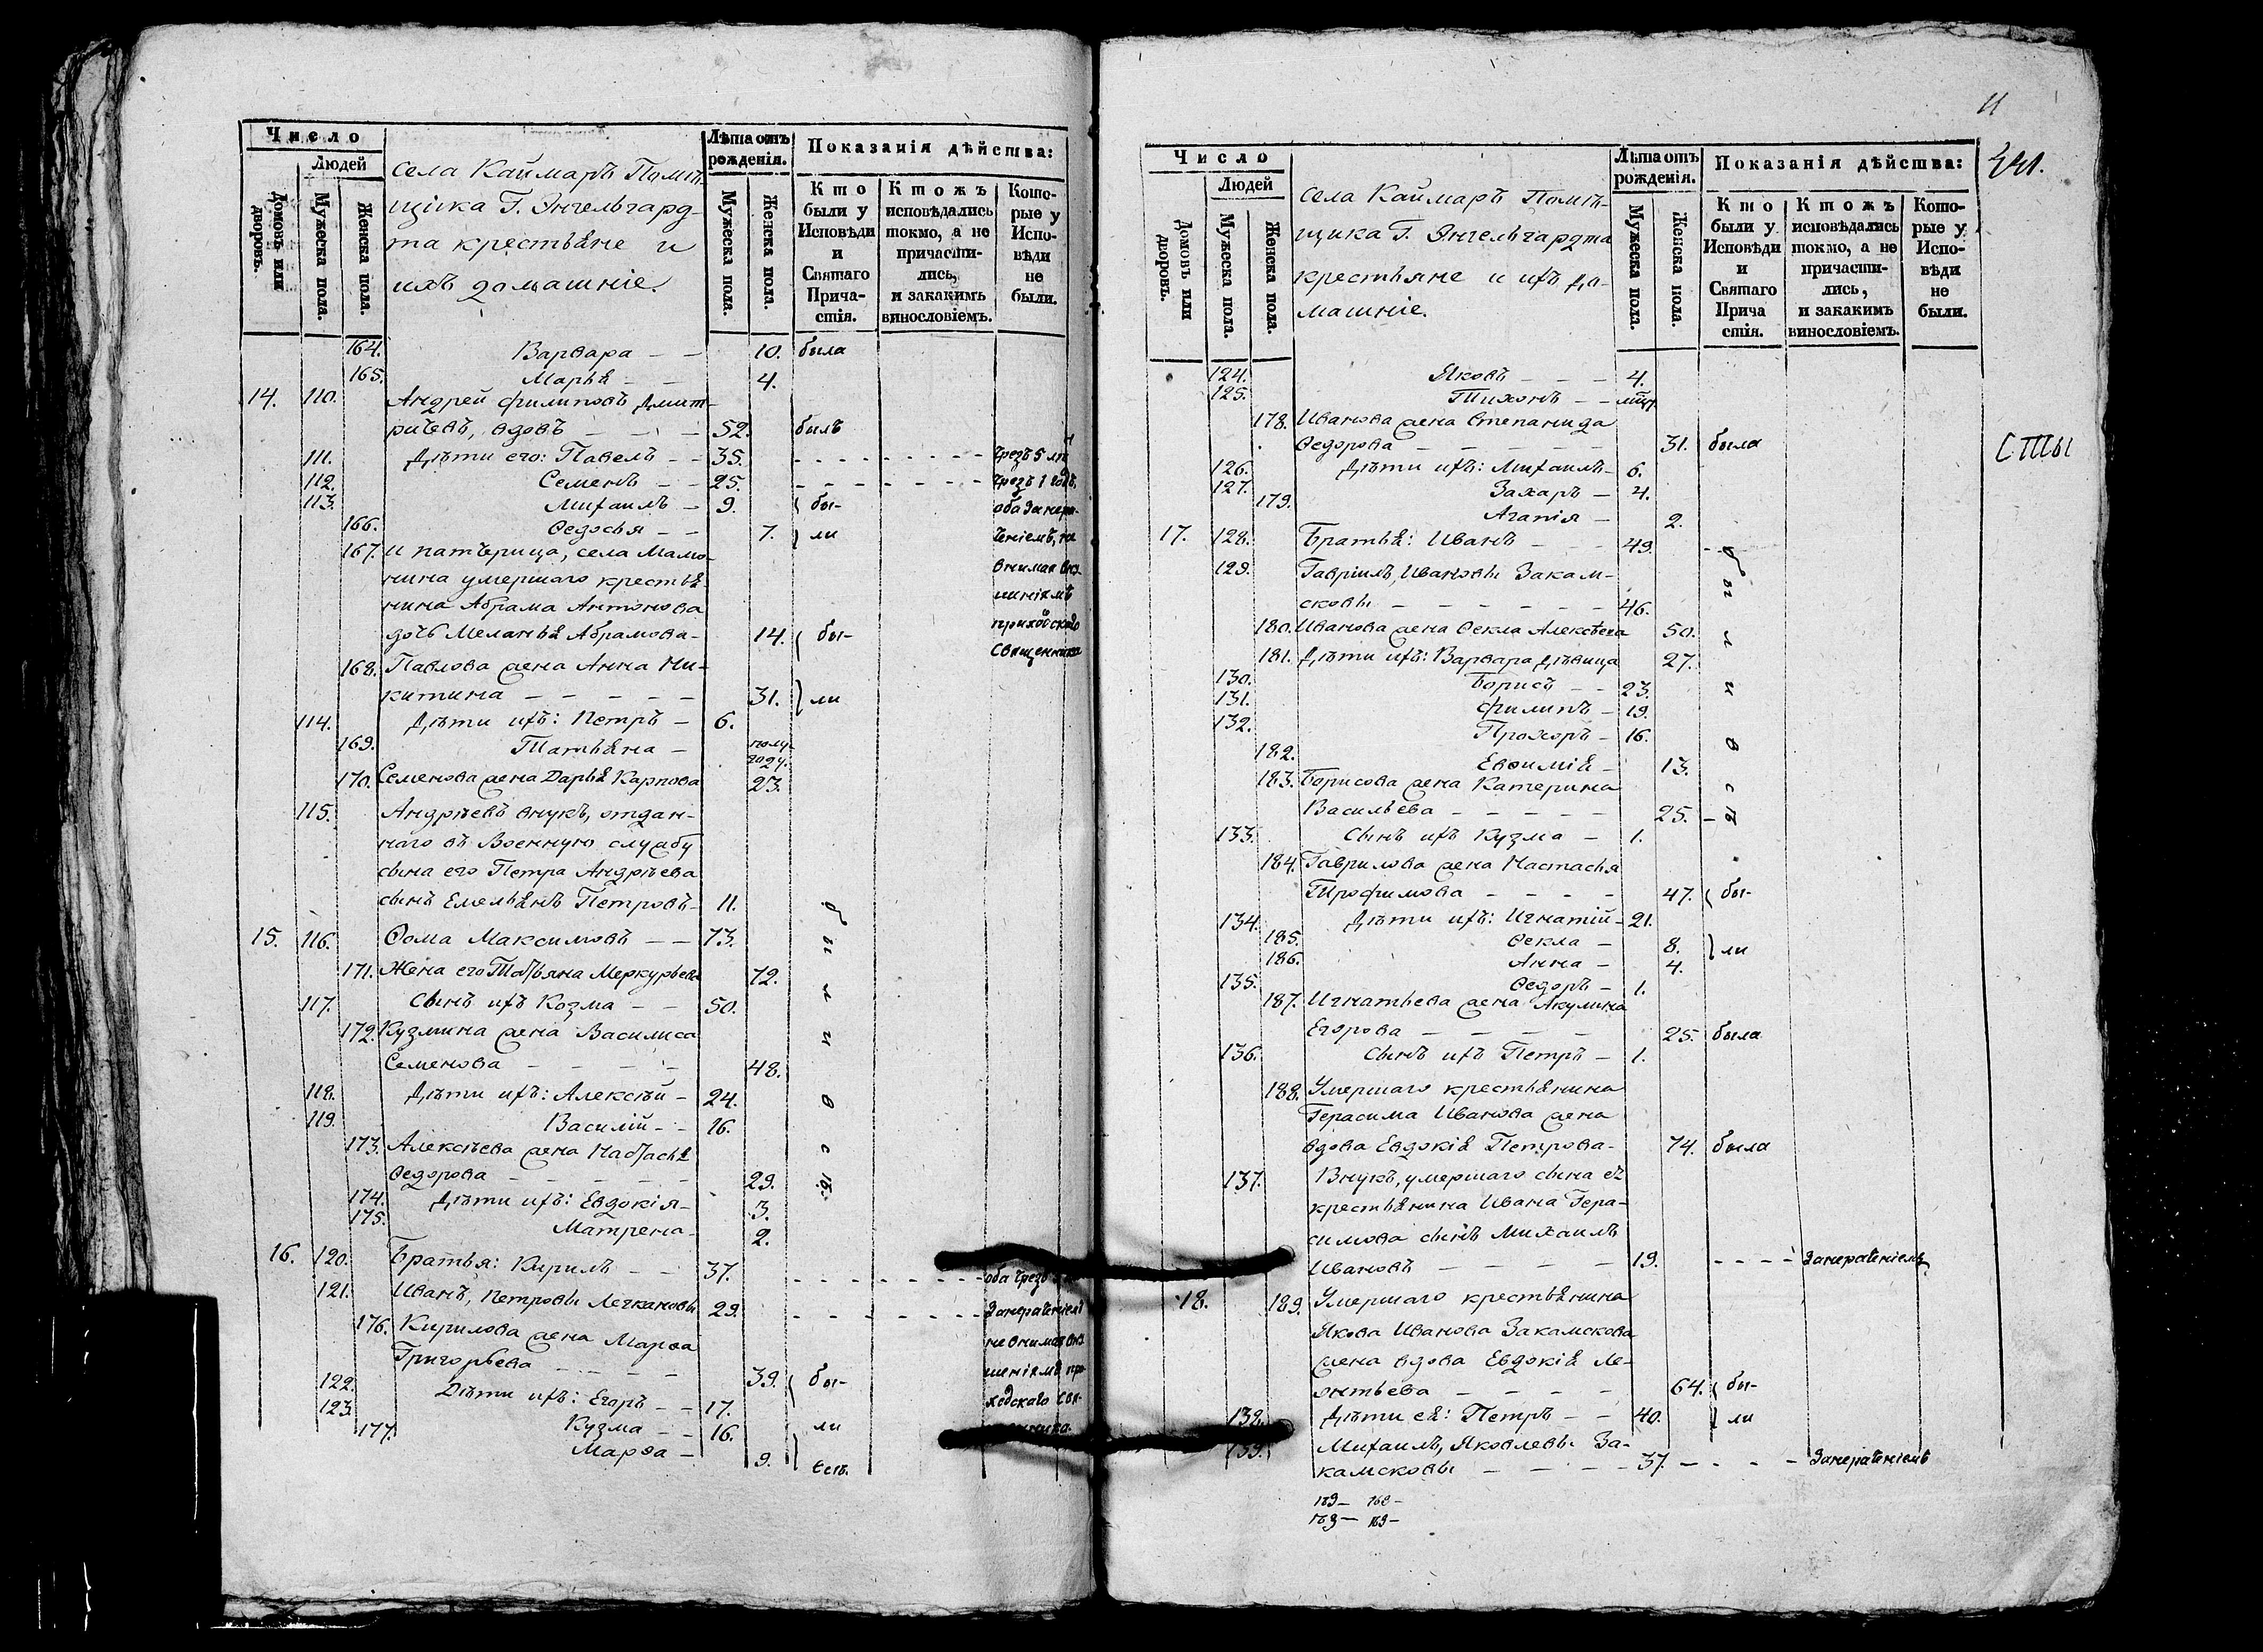 Число
Людей
Домовъ или дворовъ.
Мужеска пола.
Женска пола.
села Каймаръ Помѣ-
щика Г. Энгельгард-
та крестьѧне и
ихъ домашніе.
Лѣта отъ рожденія.
Мужеска пола.
Женска пола.
Показанія дѣйства:
Кто были у Исповѣди и Святаго Прича-стія.
Ктожъ исповѣдались токмо, а не причасти-лись, и закакимъ винословіемъ.
Кото-рые у Испо-вѣди не были.
164. Варвара — — 10. была
165. Марьѧ — — 4.
14. 110. Андрей Филиповъ Дмит-
риевъ, вдовъ — — — 52. былъ
111. Дѣти его: Павелъ — — 35. - - - - чрезъ 5 лѣт
112. Семенъ — — 25. - - - - чрезъ 1 годъ
113. Михаилъ — 9. бы- оба занера-
166. Ѳедосья — — 7. ли ченіемъ, не
167. и патѣрица, села Мамо- внимая вну-
нина умершаго крестьѧ- шеніямъ
нина Абрама Антонова приходскаго
дочь Меланьѧ Абрамова- 14. бы- Священника
168. Павлова жена Анна Ни-
китина — — — — — 31. ли
114. Дѣти ихъ: Петръ — 6.
169. Татьѧна — полу-
году.
170. Семенова жена Дарьѧ Карпова 23.
115. Андрѣевъ внукъ, отдан-
наго въ Военную службу
сына его Петра Андрѣева
сынъ Емельѧнъ Петровъ- 11.
15. 116. Ѳома Максимовъ — — 73. были всѣ.
171. Жена его Татьяна Меркурьева 72.
117. Сынъ ихъ Козма — — 50.
172. Кузмина жена Василиса
Семенова — — — — 48.
118. Дѣти ихъ: Алексѣй — 24.
119. Василій — - 16.
173. Алексѣева жена Настасьѧ
Ѳедорова — — — — — 29.
174. Дѣти ихъ: Евдокія — 3.
175. Матрена — 2.
16. 120. Братья: Кирилъ — — 37. - - - - оба чрезъ
121. Иванъ, Петровы Легкановы 29. - - - - Занераченіемъ
176. Кирилова жена Марѳа не внимая вну-
Григорьева — — — 39. бы- шеніямъ при-
122. Дѣти ихъ: Егоръ — — 17. ходскаго Свя-
123. Кузма — — 16. ли
177. Марѳа — 9. всѣ.
11
441.
Число
Людей
Домовъ или дворовъ.
Мужеска пола.
Женска пола.
села Каймаръ Помѣ-
щика Г. Энгельгардта
крестьяне и ихъ до-
машніе.
Лѣта отъ рожденія.
Мужеска пола.
Женска пола.
Показанія дѣйства:
Кто были у Исповѣди и Святаго Прича стія.
Ктожъ исповѣдались токмо, а не причасти-лись, и закакимъ винословіемъ.
Кото-рые у Испо-вѣди не были.
124. Яковъ — — — 4.
125. Тихонъ — —
178. Иванова жена Степанида
Ѳедорова — — — — — 31. была
126. Дѣти ихъ: Михаилъ — 6.
127. Захаръ — 4.
179. Агапія — 2.
17. 128. Братьѧ: Иванъ — — — 49. были всѣ
129. Гавріилъ, Ивановы Закам-
сковы — — — — — — 46.
180. Иванова жена Ѳекла Алексѣева 50.
181. Дѣти ихъ: Варвара дѣвица 27.
130. Борисъ — — 23.
131. Филипъ — 19.
132. Прохоръ — 16.
182. Евѳиміѧ — 13.
183. Борисова жена Катерина
Васильева — — — — — 25.
133. Сынъ ихъ Кузма — 1.
184. Гаврилова жена Настасья
Трофимова — — — — 47. бы-
134. Дѣти ихъ: Игнатій — 21.
185. Ѳекла — 8. ли
186. Анна — 4.
135. Ѳедоръ — 1.
187. Игнатьева жена Акулина
Егорова — — — — 25. была
136. Сынъ ихъ Петръ — 1.
188. Умершаго крестьѧнина
Герасима Иванова жена
вдова Евдокіѧ Петрова- 74. была
137. Внукъ, умершаго сына еѧ
крестьѧнина Ивана Гера-
симова сынъ Михаилъ
Ивановъ — — — — — 19. - - - - Занераченіемъ
18. 189. Умершаго крестьѧнина
Якова Иванова Закамскова
жена вдова Евдокіѧ Ле-
онтьева — — — — 64. бы-
138. Дѣти еѧ: Петръ — — 40. ли
139. Михаилъ, Яковлевы За-
камсковы — — — — 37. - - - - Занераченіемъ